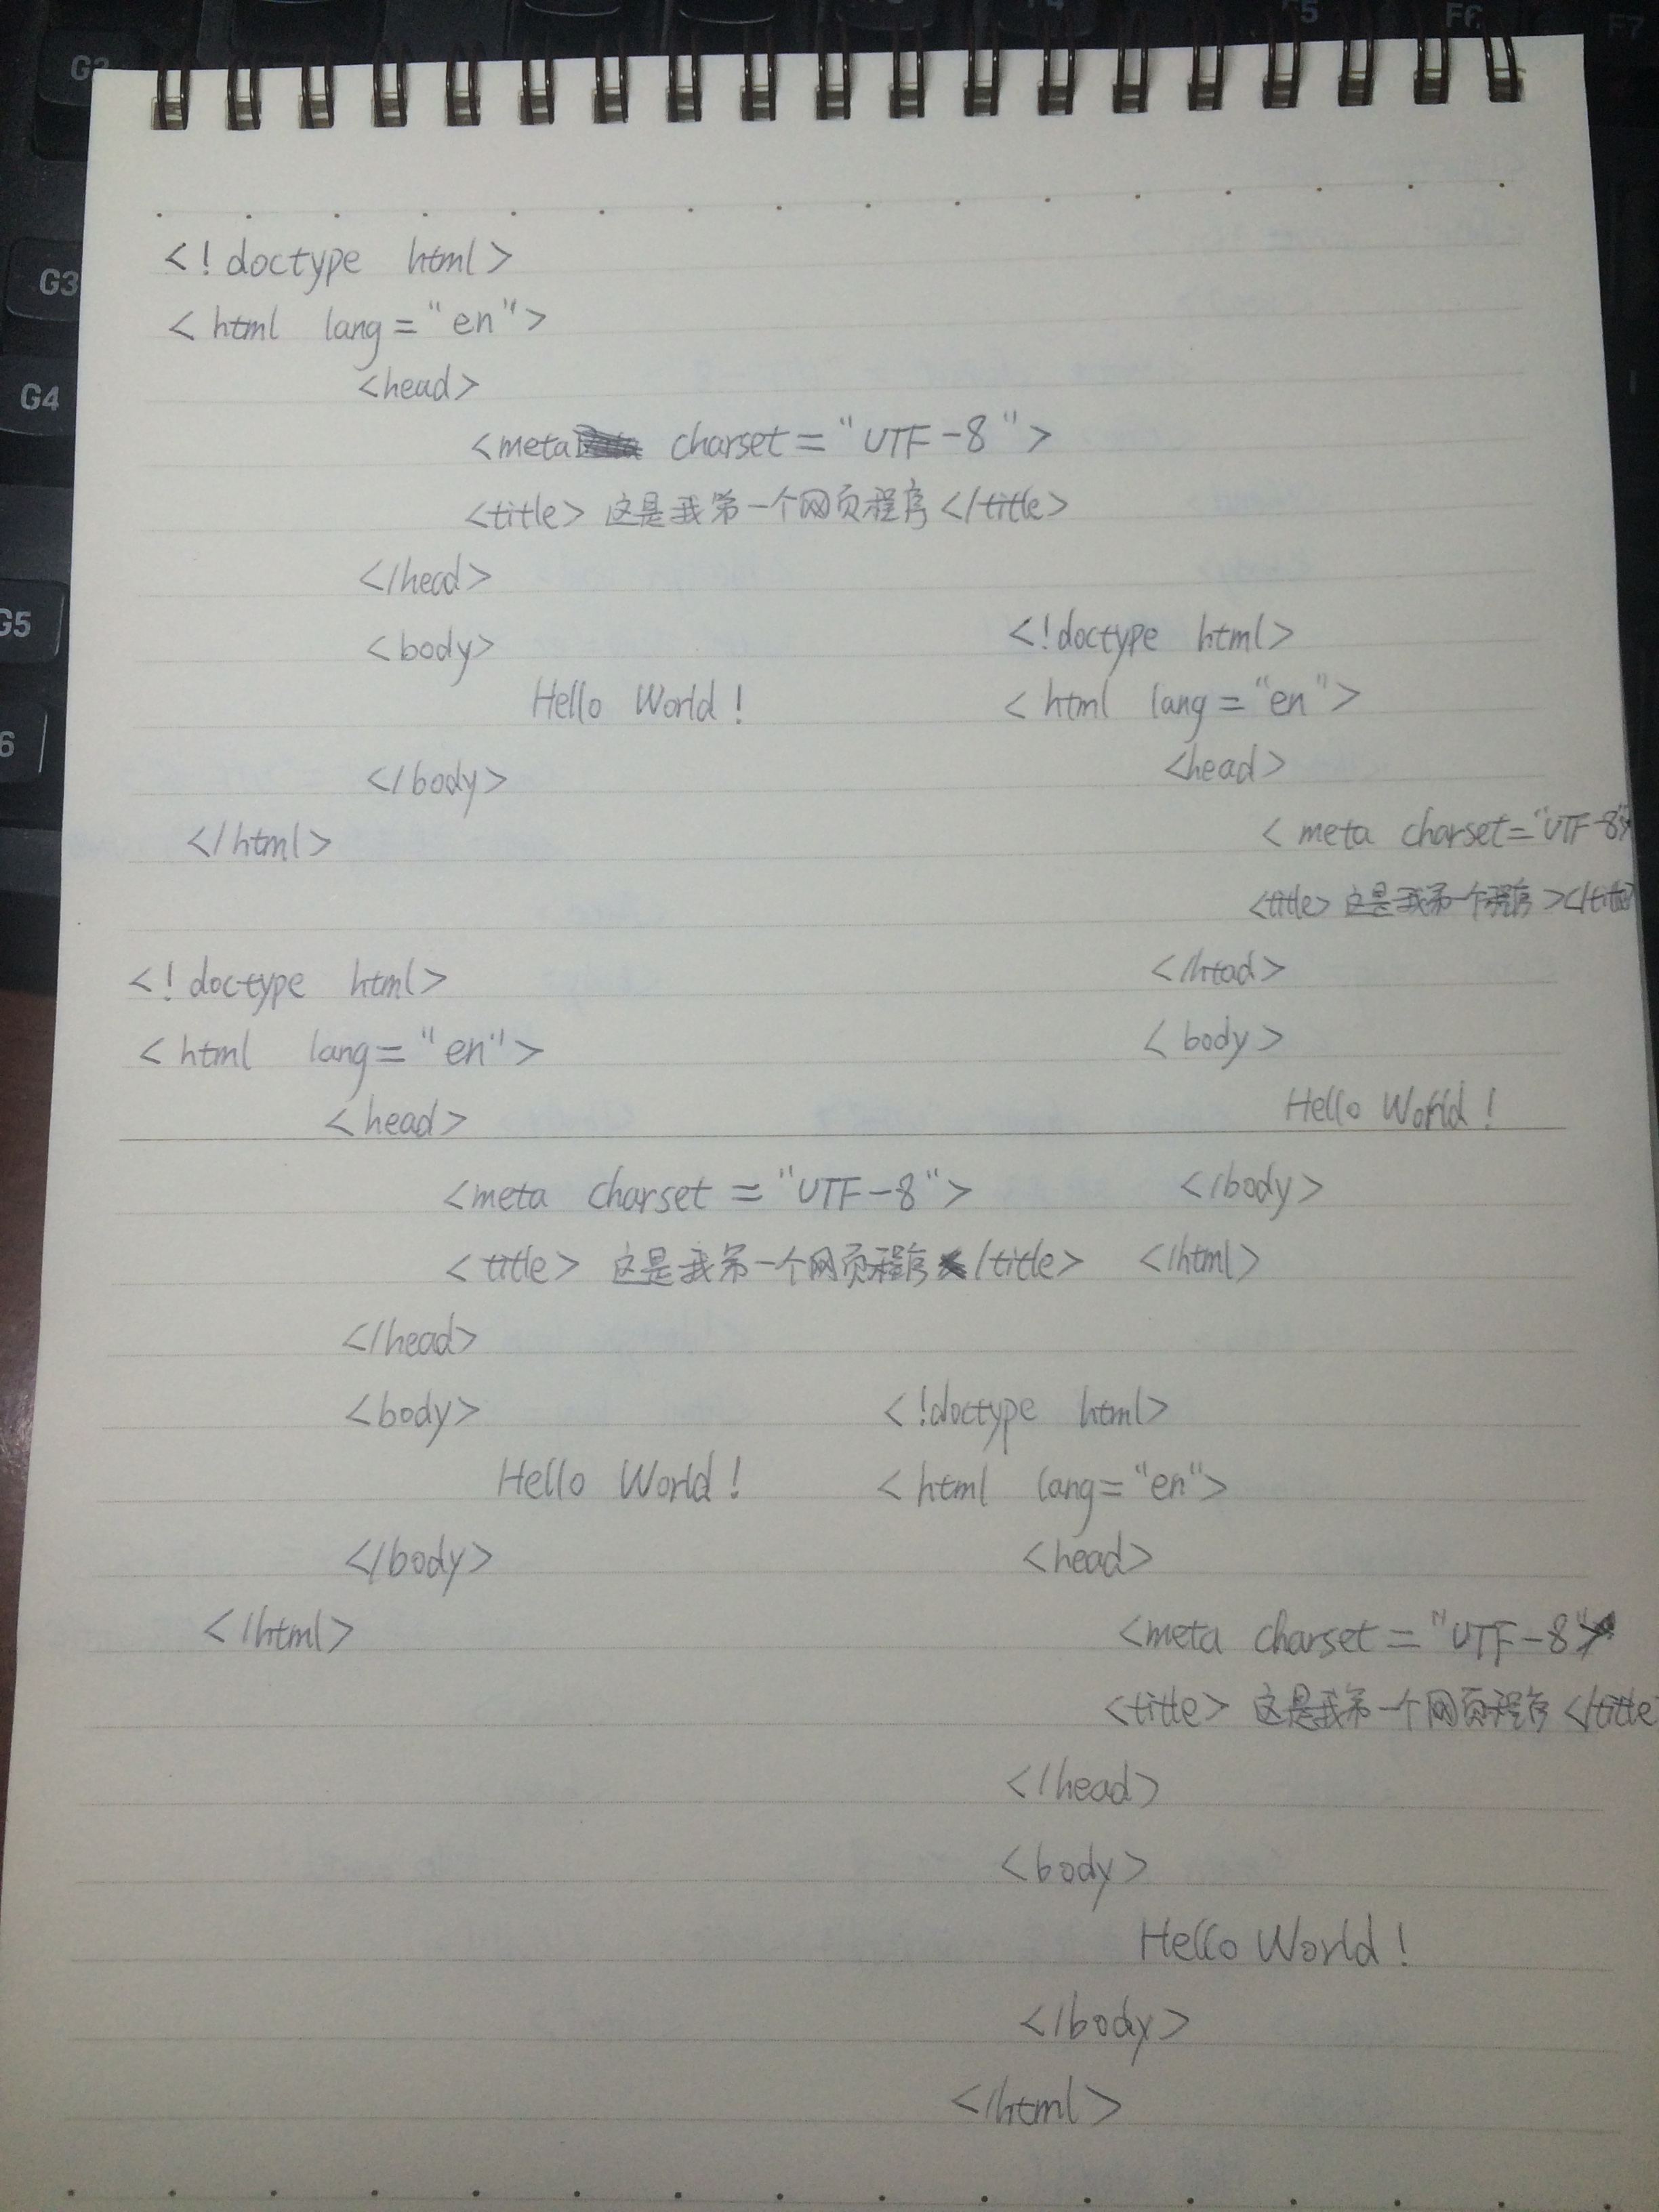 <!doctype html>
<html lang="en">
<head>
<meta charset="UTF-8">
<title> 这是我第一个网页程序 </title>
</head>
<body>
Hello World!
</body>
</html>
<!doctype html>
<html lang="en">
<head>
<meta charset="UTF-8">
<title> 这是我第一个程序 ></title>
</head>
<body>
Hello World!
</body>
</html>
<!doctype html>
<html lang="en">
<head>
<meta charset="UTF-8">
<title> 这是我第一个网页程序 </title>
</head>
<body>
Hello World!
</body>
</html>
<!doctype html>
<html lang="en">
<head>
<meta charset="UTF-8">
<title> 这是我第一个网页程序 </title
</head>
<body>
Hello World!
</body>
</html>
G3
G4
G5
6
F4
F5
F6
F7